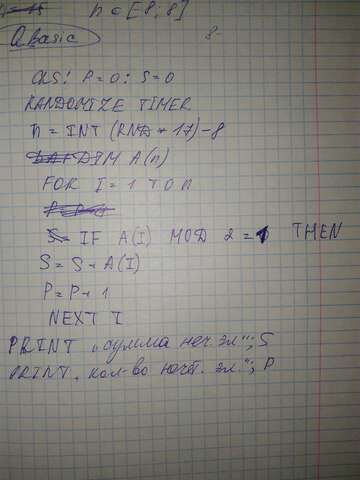 n ∈ [8, 8]
QBasic
8-
CLS: P=0: S=0
RANDOMIZE TIMER
n = INT (RND * 17) - 8
DIM A(n)
FOR I = 1 TO n
IF A(I) MOD 2 = 1 THEN
S = S + A(I)
P = P + 1
NEXT I
PRINT "сумма неч эл."; S
PRINT "кол-во нечёт. эл."; P